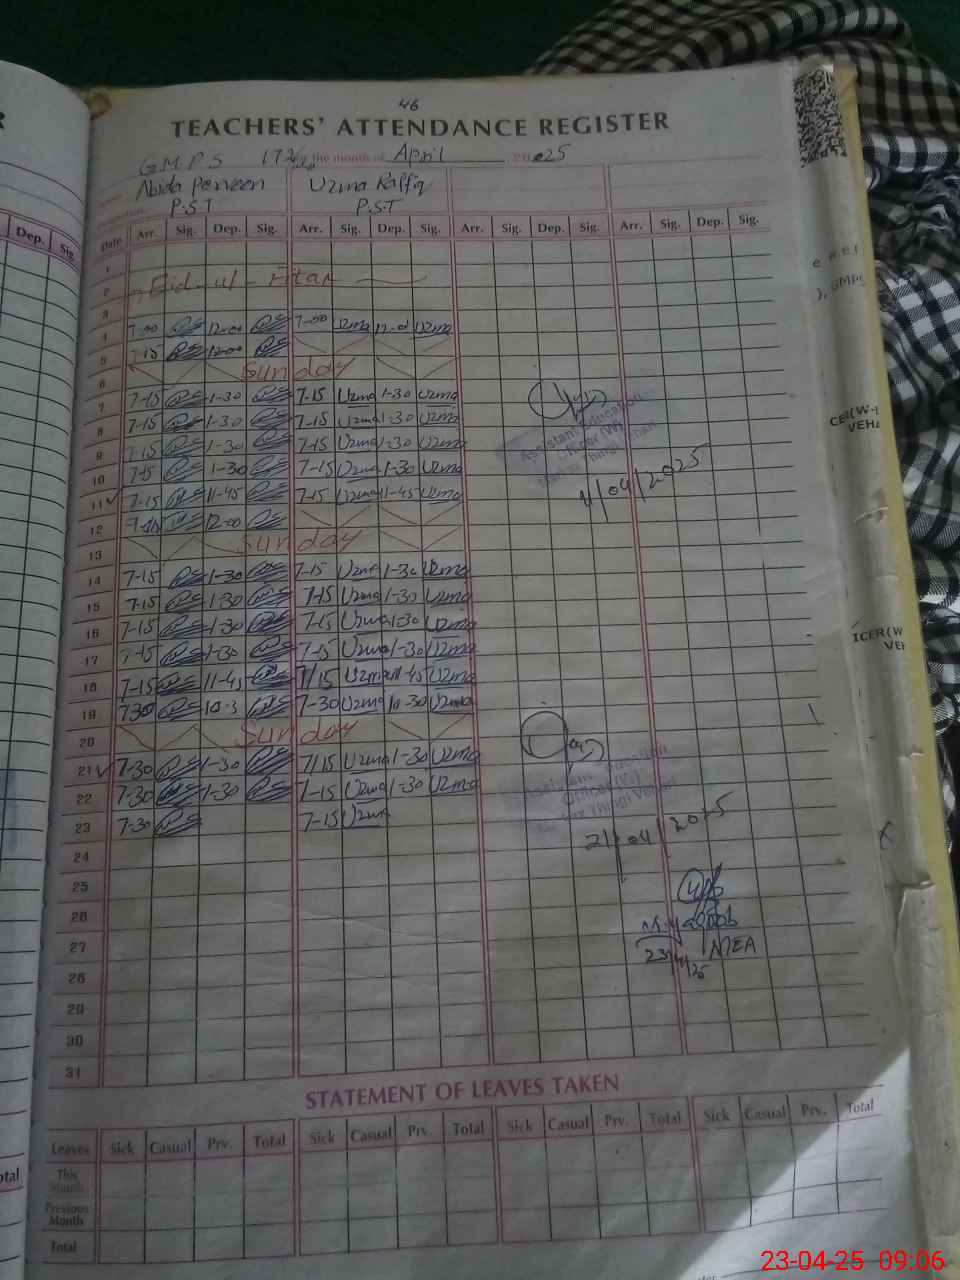 46
TEACHERS' ATTENDANCE REGISTER
G.M.P.S 172 the month of April 2025
Abida Perveen Uzma Raffiq
P.S.T P.S.T
Dep. Sig.
Date Arr. Sig. Dep. Sig. Arr. Sig. Dep. Sig. Arr. Sig. Dep. Sig. Arr. Sig. Dep. Sig.
1
2 Eid-ul-Fitar
3
4 7-00 12-00 7-00 Uzma 12-0 Uzma
5 7-15 12-00
6 Sunday
7 7-15 1-30 7-15 Uzma 1-30 Uzma
8 7-15 1-30 7-15 Uzma 1-30 Uzma
9 7-15 1-30 7-15 Uzma 1-30 Uzma
10 7-15 1-30 7-15 Uzma 1-30 Uzma
11 7-15 11-45 7-15 Uzma 11-45 Uzma
12 12-00
13 Sunday
14 7-15 1-30 7-15 Uzma 1-30 Uzma
15 7-15 1-30 7-15 Uzma 1-30 Uzma
16 7-15 1-30 7-15 Uzma 1-30 Uzma
17 7-15 1-30 7-15 Uzma 1-30 Uzma
18 7-15 11-45 7/15 Uzma 11-45 Uzma
19 7-30 10-3 7-30 Uzma 10-30 Uzma
20 Sunday
21 7-30 1-30 7/15 Uzma 1-30 Uzma
22 7-30 1-30 7-15 Uzma 1-30 Uzma
23 7-30 7-15 Uzma
24
25
26
27
28
29
30
31
Assistant Education
Officer (W)
11/04/2025
Assistant Education
Officer (W)
21/04/2025
M. Yaqoob
MEA
23/4/25
STATEMENT OF LEAVES TAKEN
Leaves Sick Casual Prv. Total Sick Casual Prv. Total Sick Casual Prv. Total Sick Casual Prv. Total
This Month
Previous Month
Total
23-04-25 09:06